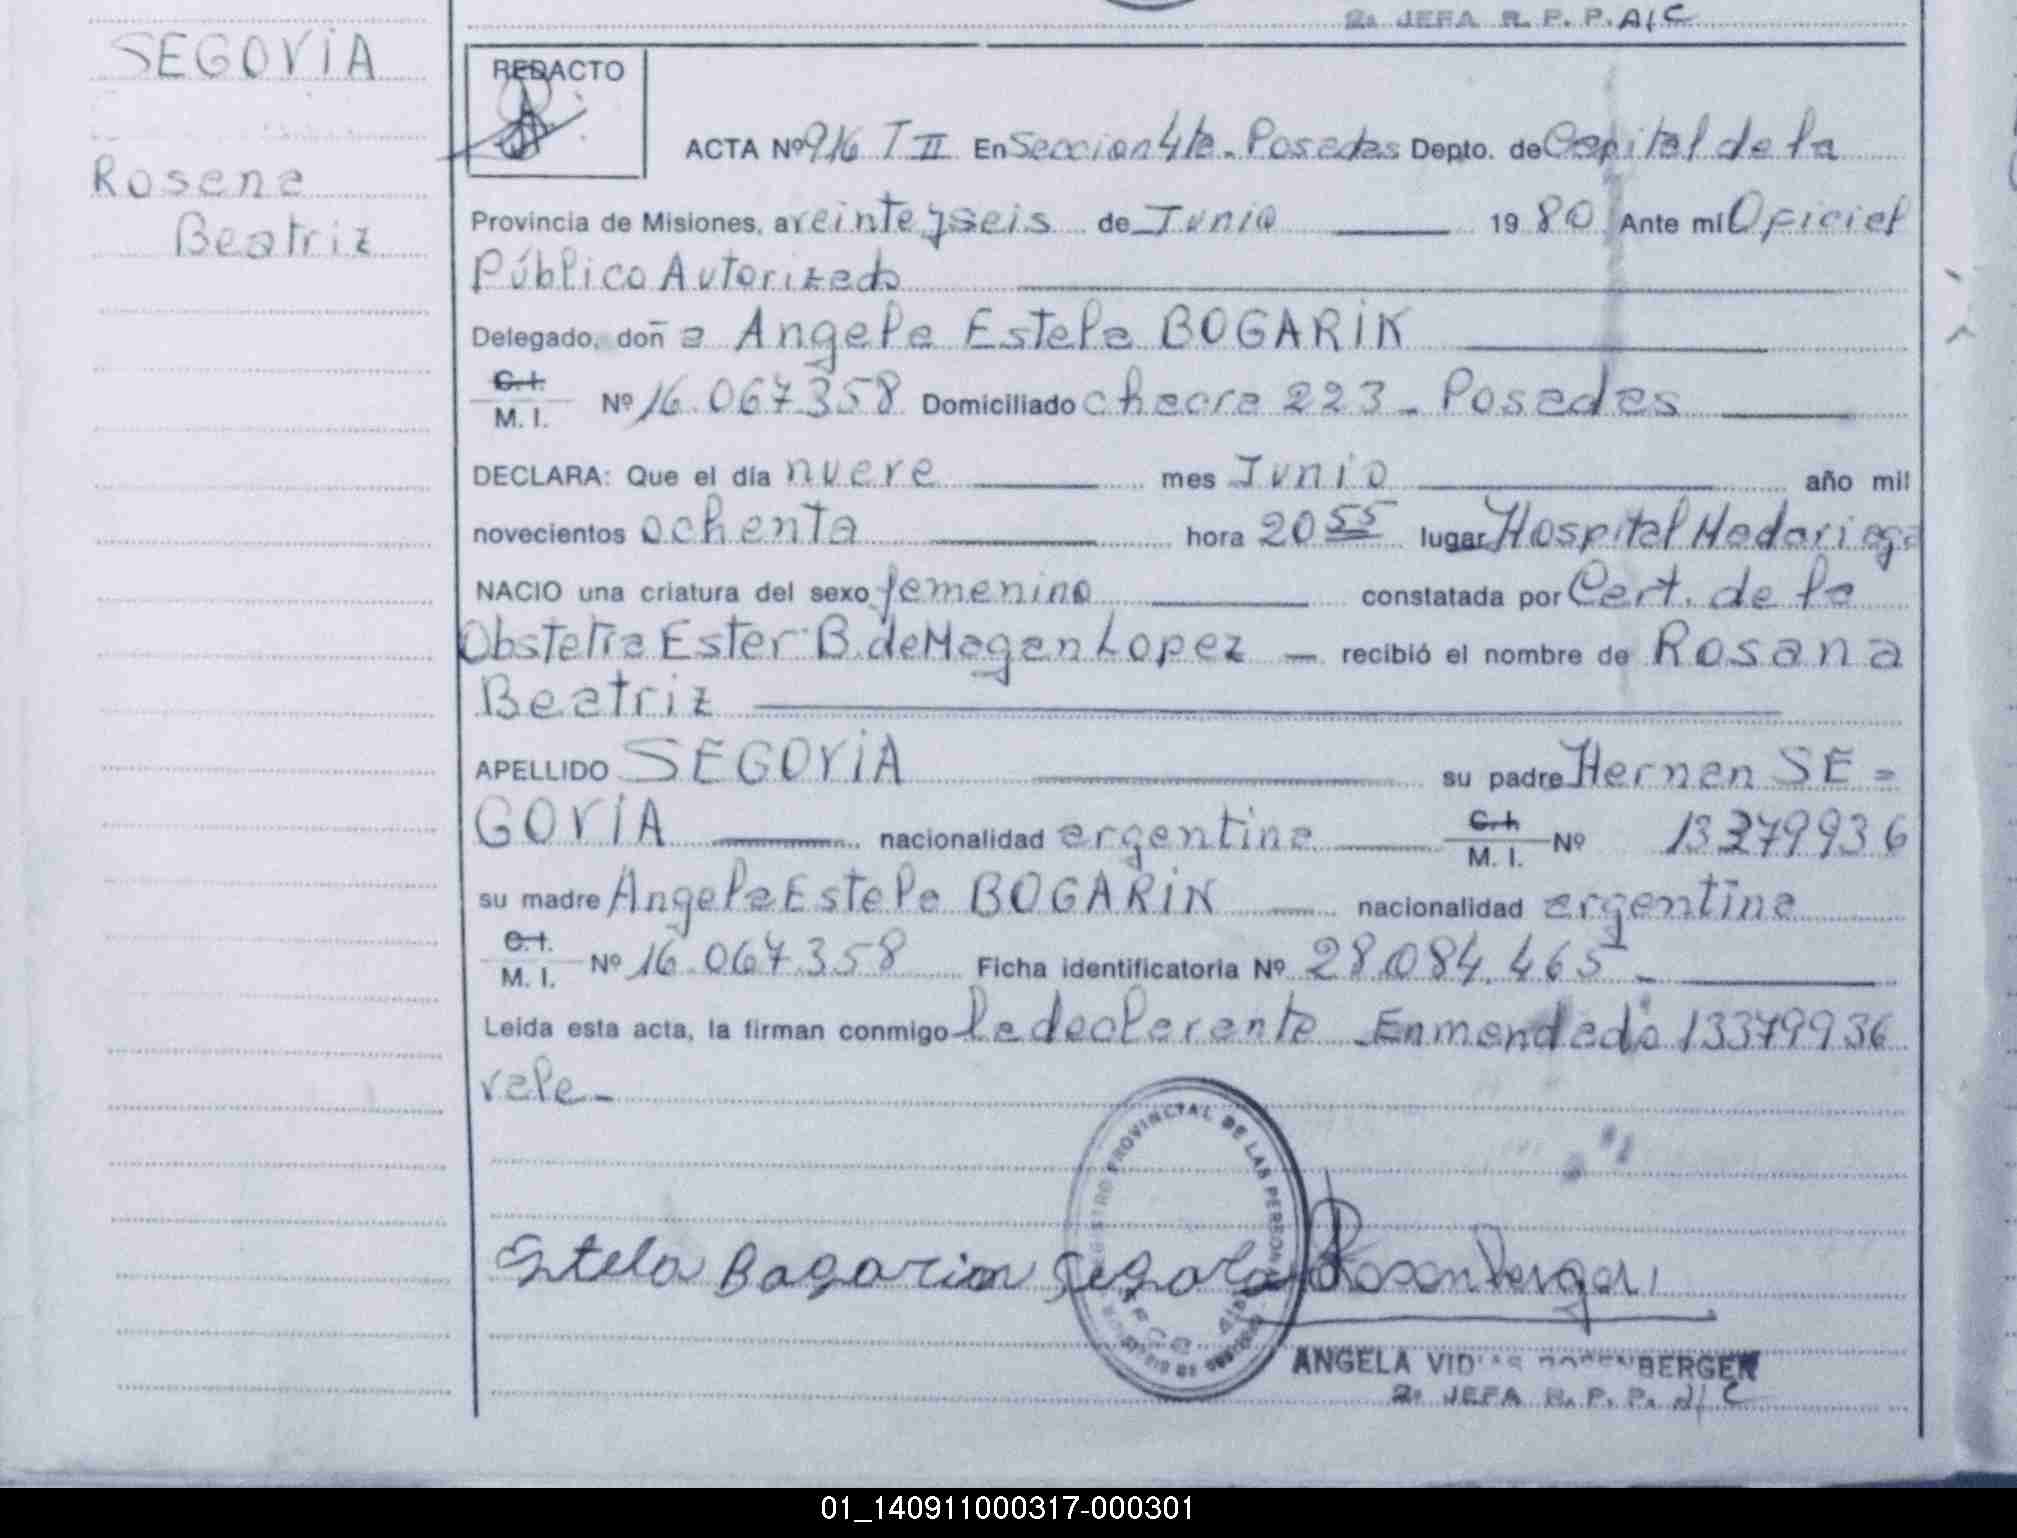 2a JEFA R. P. P. A/C
SEGOVIA
Rosana
Beatriz
REDACTO
ACTA Nº 916 T II En Seccion 4ta. Posadas Depto. de Capital de la
Provincia de Misiones, a veinteyseis de Junio 19 80 Ante mi Oficial
Público Autorizado
Delegado, doñ a Angela Estela BOGARIN
C. I.
M. I. Nº 16.067.358 Domiciliado chacra 223 - Posadas
DECLARA: Que el día nueve mes Junio año mil
novecientos ochenta hora 20 55 lugar Hospital Madariaga
NACIO una criatura del sexo femenino constatada por Cert. de la
Obstetra Ester B. de Magan Lopez — recibió el nombre de Rosana
Beatriz
APELLIDO SEGOVIA su padre Hernan SE=
GOVIA nacionalidad argentina C. I. M. I. Nº 13379936
su madre Angela Estela BOGARIN nacionalidad argentina
C. I.
M. I. Nº 16.067.358 Ficha identificatoria Nº 28.084.465 -
Leida esta acta, la firman conmigo la declarante Enmendado 13379936
vale -
REGISTRO PROVINCIAL DE LAS PERSONAS
Estela Bagarin
ANGELA BERGER
2a JEFA R. P. P. A/C
01_140911000317-000301